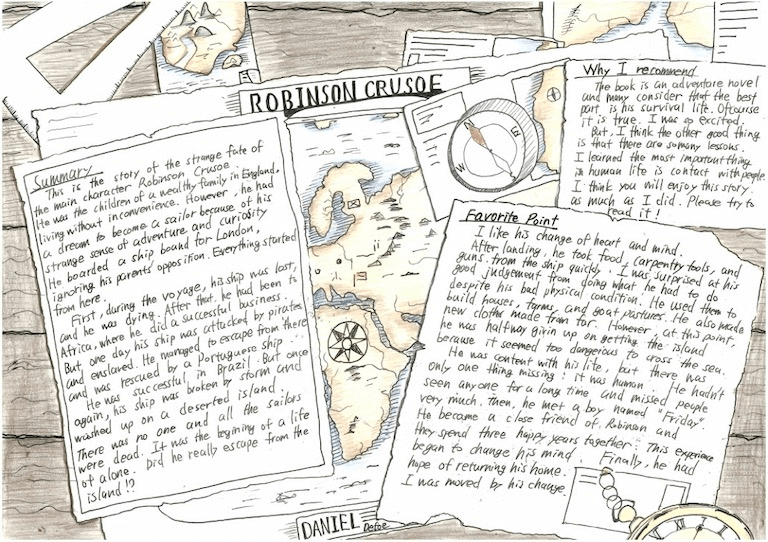 ROBINSON CRUSOE
Summary
This is the story of the strange fate of
the main character Robinson Crusoe.
He was the children of a wealthy family in England,
living without inconvenience. However, he had
a dream to become a sailor because of his
strange sense of adventure and curiosity
He boarded a ship bound for London,
ignoring his parents opposition. Everything started
from here.
First, during the voyage, his ship was lost,
and he was dying. After that he had been to
Africa, where he did a successful business.
But one day his ship was attacked by pirates
and enslaved. He managed to escape from there
and was rescued by a Portuguese ship
He was successful in Brazil. But once
again, his ship was broken by storm and
washed up on a deserted island.
There was no one and all the sailors
were dead. It was the begining of a life
of alone. Did he really escape from the
island!?
Why I recommend
The book is an adventure novel
and many consider that the best
part is his survival life. Ofcourse
it is true. I was so excited.
But, I think the other good thing
is that there are somany lessons.
I learned the most important thing
in human life is contact with people.
I think you will enjoy this story.
as much as I did. Please try to
read it!
Favorite Point
I like his change of heart and mind.
After landing, he took food, carpentry tools, and
guns from the ship quickly. I was surprised at his
good judgement from doing what he had to do
despite his bad physical condition. He used them to
build houses, farms, and goat pastures. He also made
new cloths made from tar. However, at this point,
he was halfway givin up on getting the island
because it seemed too dangerous to cross the sea.
He was content with his life, but there was
only one thing missing: it was human. He hadn't
seen anyone for a long time and missed people
very much. Then, he met a boy named "Friday".
He become a close friend of Robinson and
they spend three happy years together. This experience
began to change his mind. Finally, he had
hope of returning his home.
I was moved by his change
DANIEL Defoe